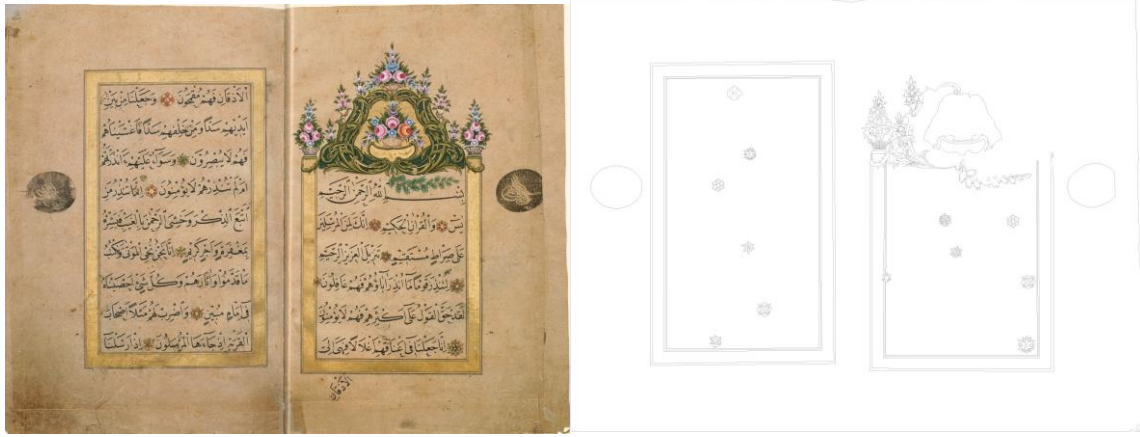 بسم الله الرحمن الرحيم
يس والقرآن الحكيم انك لمن المرسلين
على صراط مستقيم تنزيل العزيز الرحيم
لتنذر قوما ما انذر آباؤهم فهم غافلون
لقد حق القول على اكثرهم فهم لا يؤمنون
انا جعلنا في اعناقهم اغلالا فهي الى
الاذقان
الاذقان فهم مقمحون وجعلنا من بين
ايديهم سدا ومن خلفهم سدا فاغشيناهم
فهم لا يبصرون وسواء عليهم ءانذرتهم
ام لم تنذرهم لا يؤمنون انما تنذر من
اتبع الذكر وخشي الرحمن بالغيب فبشره
بمغفرة واجر كريم انا نحن نحي الموتى ونكتب
ما قدموا وآثارهم وكل شئ احصيناه
في امام مبين واضرب لهم مثلا اصحاب
القرية اذ جاءها المرسلون اذ ارسلنا